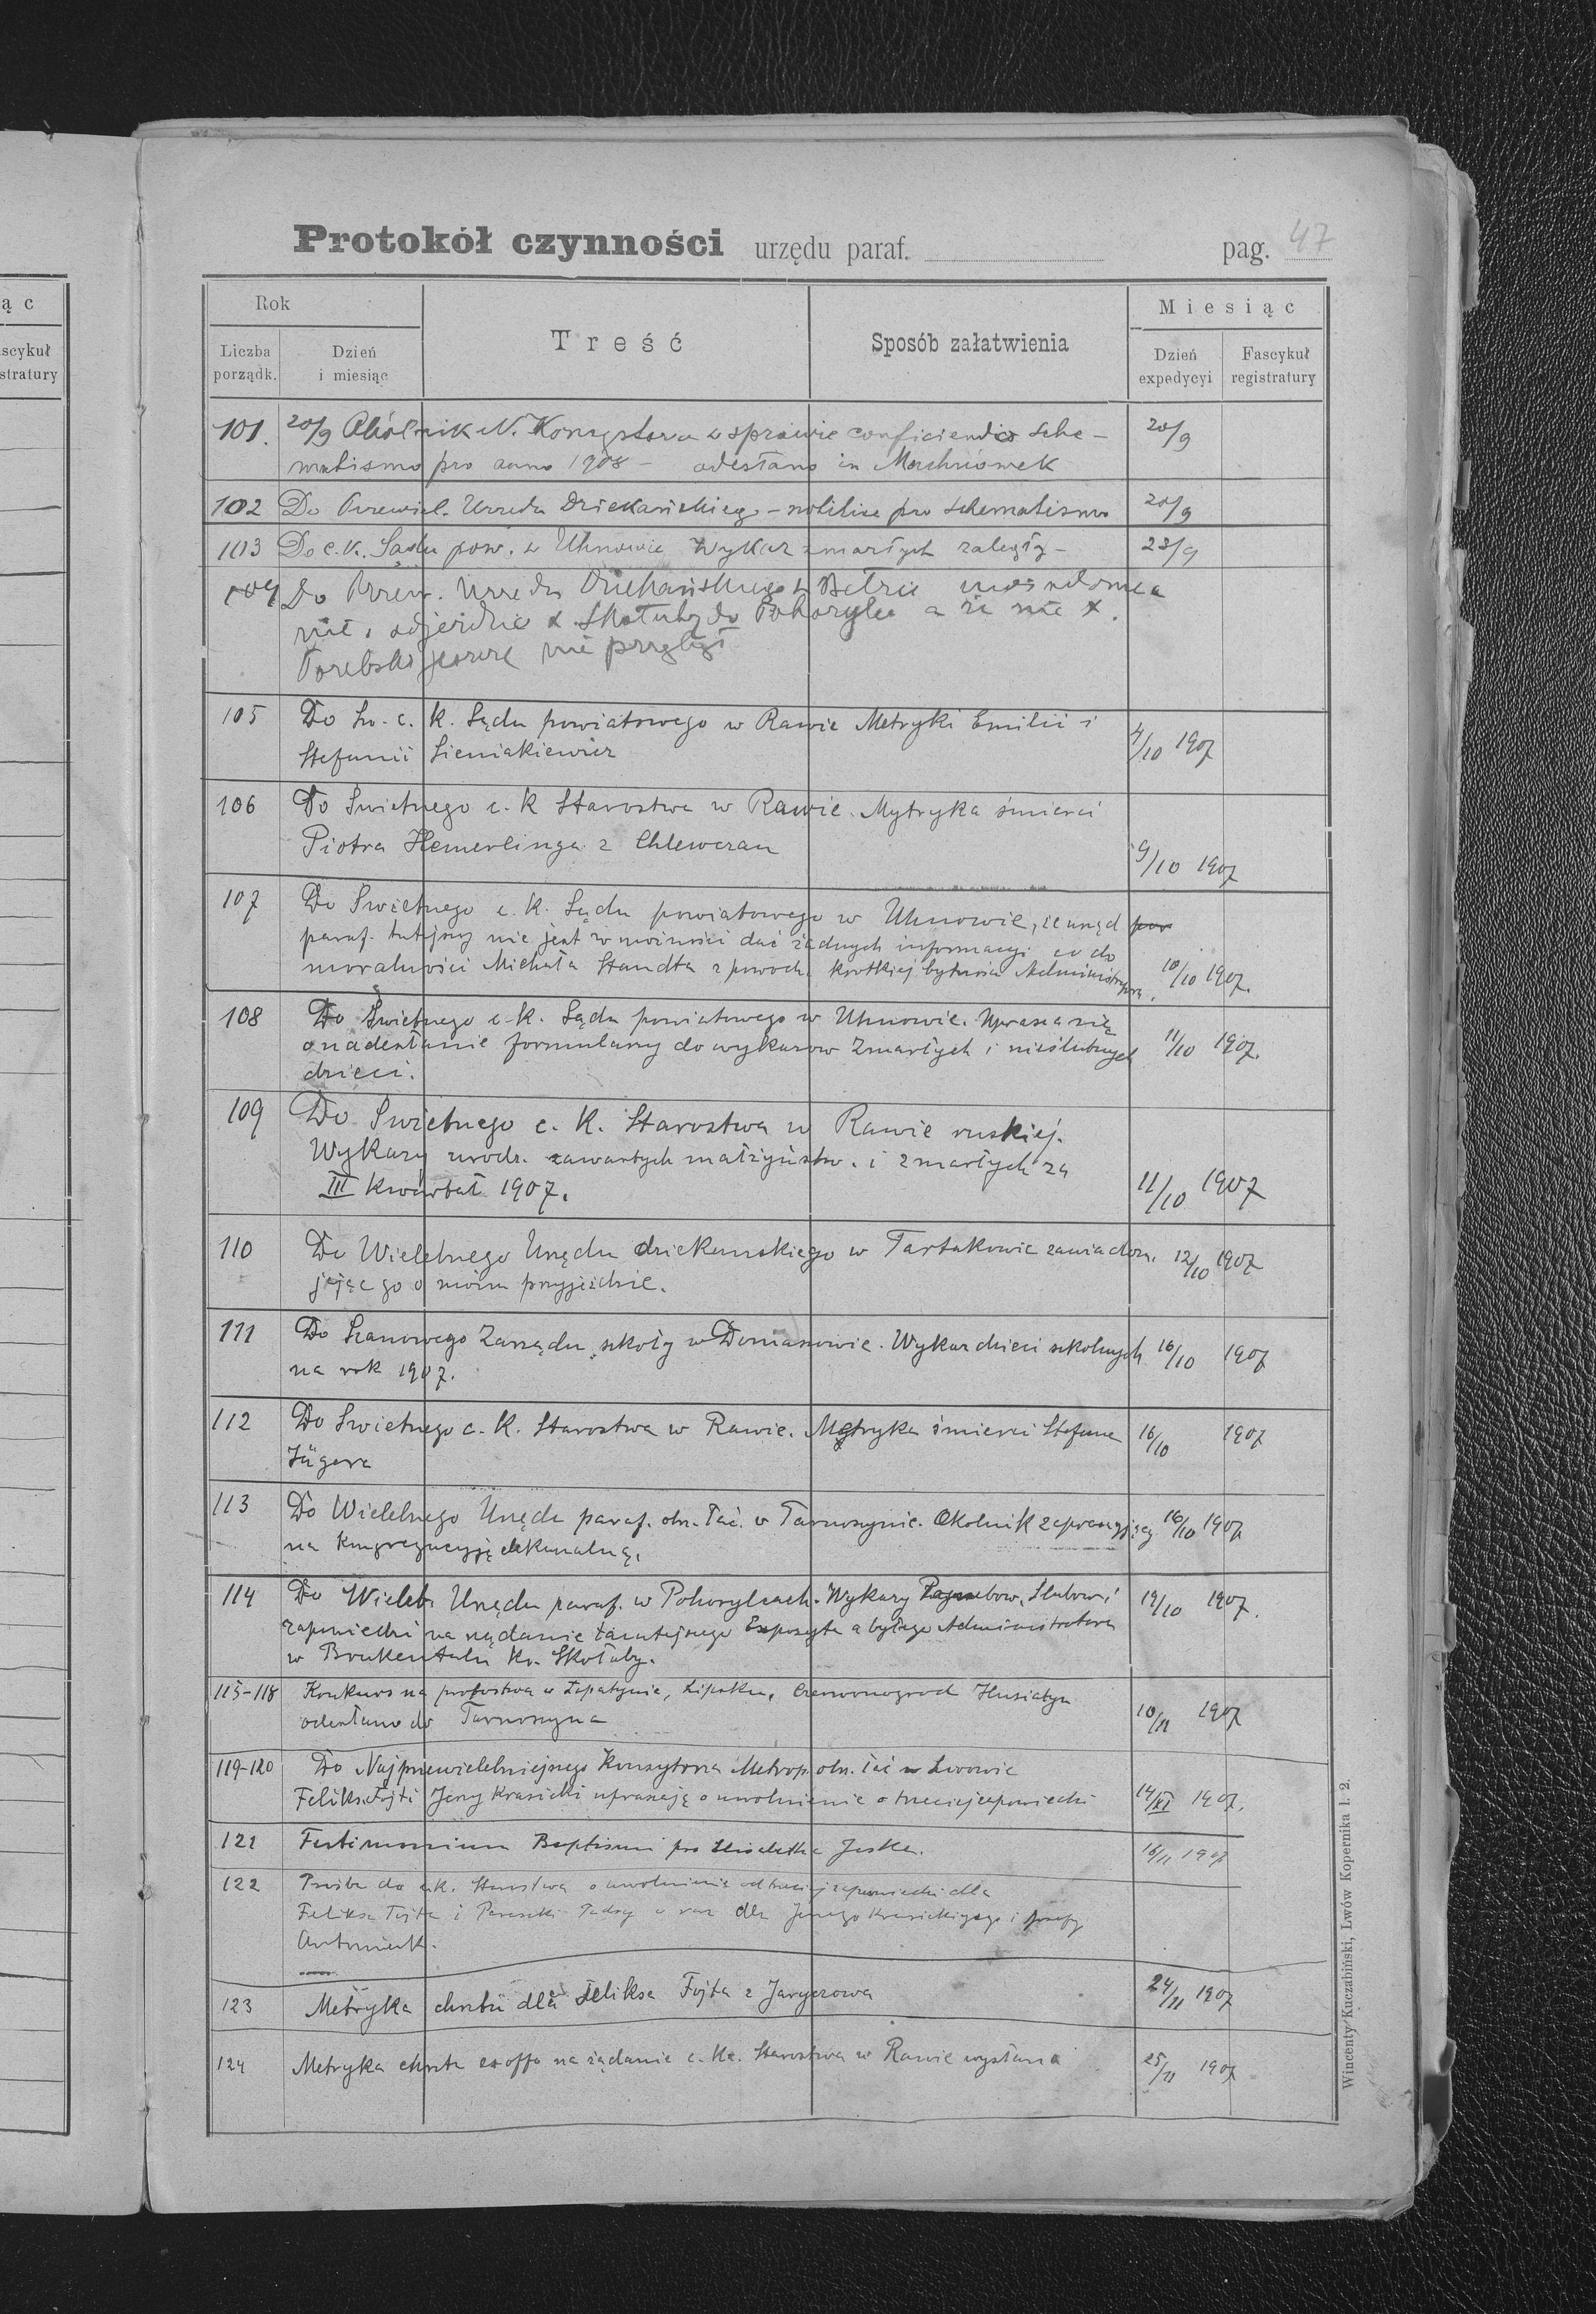 ąc
scykuł
stratury
Protokół czynności urzędu paraf. pag. 47
Rok Treść Sposób załatwienia Miesiąc
Liczba porządk. Dzień i miesiąc Dzień expedycyi Fascykuł registratury
101. 20/9 Okólnik N. Konsystorza w sprawie conficiendis sche- 20/9
matismo pro anno 1908 - odesłano in Machnówek
102 Do Przewiel. Urzedu Dziekańskieg - notitise pro schematismo 20/9
103 Do c. k. Sądu pow. w Uhnowie Wykaz zmarłych zaległy - 28/9
104 Do Przew. Urzedu Dziekańskiego w Bełzie
odjeździe X. Skołuby do Pohorylec a że nie X.
Porebski jeszcze nie przybył
105 Do Św. c. k. Sądu powiatowego w Rawie Metryki Emilii i
Stefanii Sieniakiewicz 4/10 1907
106 Do Swietnego c. k Starostwa w Rawie. Mytryka śmierci
Piotra Hemerlinga z Chlewczan 9/10 1907
107 Do Swietnego c. k. Sądu powiatowego w Uhnowie, że urząd par
paraf. tutejszy nie jest w możności dać żadnych informacyi co do
moralności Michała Standta z powodu krótkiej bytności Administratora. 10/10 1907.
108 Do Swietnego c. k. Sądu powiatowego w Uhnowie. Uprasza się
o nadesłanie formularzy do wykazow Zmarłych i nieślubnych 11/10 1907.
dzieci.
109 Do Swietnego c. k. Starostwa w Rawie ruskiej.
Wykazy urodz. zawartych małżyństw. i zmarłych za
III Kwartał 1907. 11/10 1907
110 Do Wielebnego Urzędu dziekanskiego w Tartakowie zawiadom. 12/10 1907
jając go o moim przyjeździe.
111 Do Szanowego Zarządu szkoły w Domaszowie. Wykaz dzieci szkolnych 16/10 1907
na rok 1907.
112 Do Swietnego c. k. Starostwa w Rawie. Metryka śmierci Stefana 16/10 1907
Jägera
113 Do Wielebnego Urzędu paraf. obr. łać. w Tarnoszynie. Okolnik zapraszający 16/10 1907
na kongregacyję dekanalną.
114 Do Wieleb. Urzędu paraf. w Pohorylcach. Wykazy Pogrzebow, Slubow i 19/10 1907.
zapowiedzi na rządanie tamtejszego Exposyta a byłego Administratora
w Bruckentalu ks. Skołuby.
115-118 Konkurs na probostwa w Łopatynie, Lipsku, Czerwonogrod Husiatyn
odesłano do Tarnoszyna 10/11 1907
119-120 Do Najprzewielebniejszego Konsystorza Metrop. obr. łać w Lwowie
Feliks Fojt i Jerzy Krasicki upraszają o uwolnienie o trzeciej zapowiedzi 14/XI 1907.
121 Testimonium Baptismi pro Elisabetha Jeske. 16/11 1907
122 Prośba do c.k. Starostwa o uwolnienie od trzeciej zapowiedzi dla
Feliksa Fojta i Paraski oraz dla Jerzego Krasickiego i Josefy
Antoniuk.
123 Metryka chrztu dla Feliksa Fojta z Jaryczowa 24/11 1907
124 Metryka chrztu ex offo na żądanie c. k. Starostwa w Rawie wysłana 25/11 1907
Wincenty Kuczabiński, Lwów Kopernika l. 2.